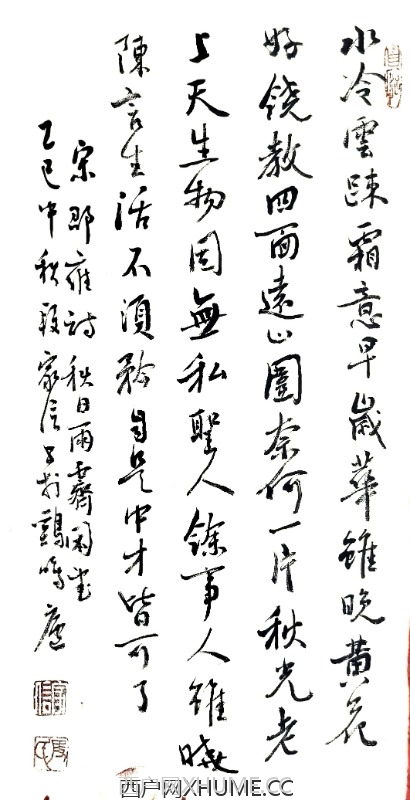 水冷雲踈霜意早歲華雖晚黄花
好饒教四面遠山圍奈何一片秋光老
上天生物固無私聖人餘事人雖曉
陳言生活不須矜自是中才皆可了
宋邵雍詩秋日雨齋閑望
乙巳中秋段家信書於鷄鳴廬
西户网XHUME.CC